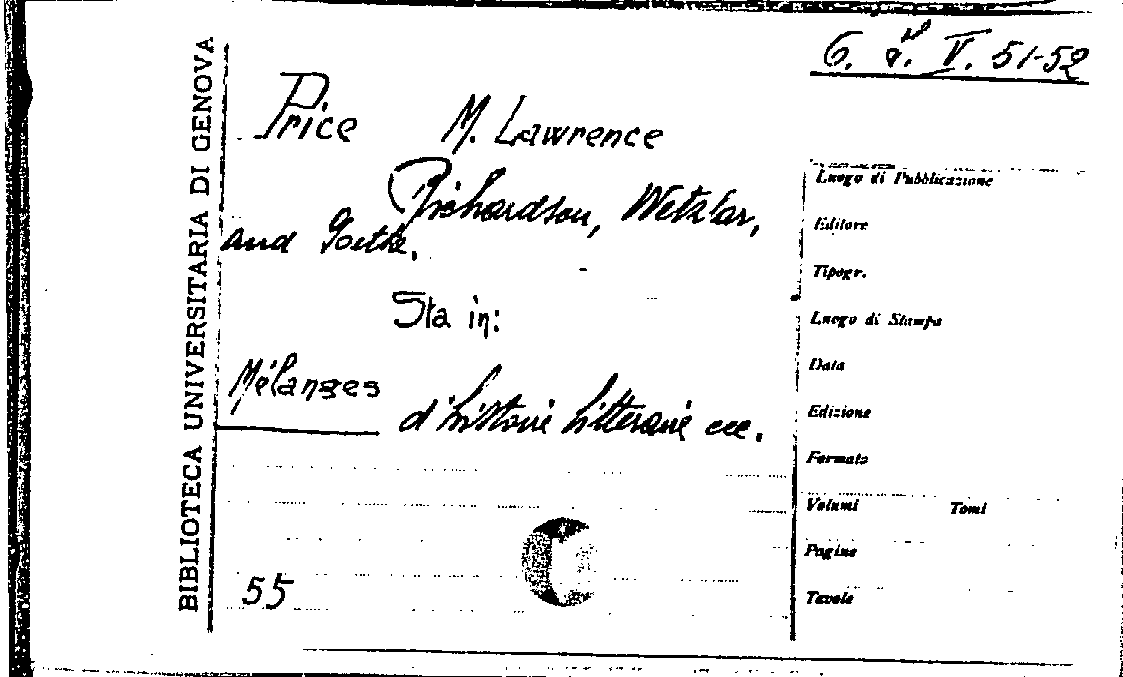 BIBLIOTECA UNIVERSITARIA DI GENOVA
V. 51-52
Price M. Lawrence
Richardson, Wetzlar,
and Goethe.
Sta in:
Mélanges
d'histoire litteraire ecc.
55
Luogo di Pubblicazione
Editore
Tipogr.
Luogo di Stampa
Data
Edizione
Formato
Volumi Tomi
Pagine
Tavole